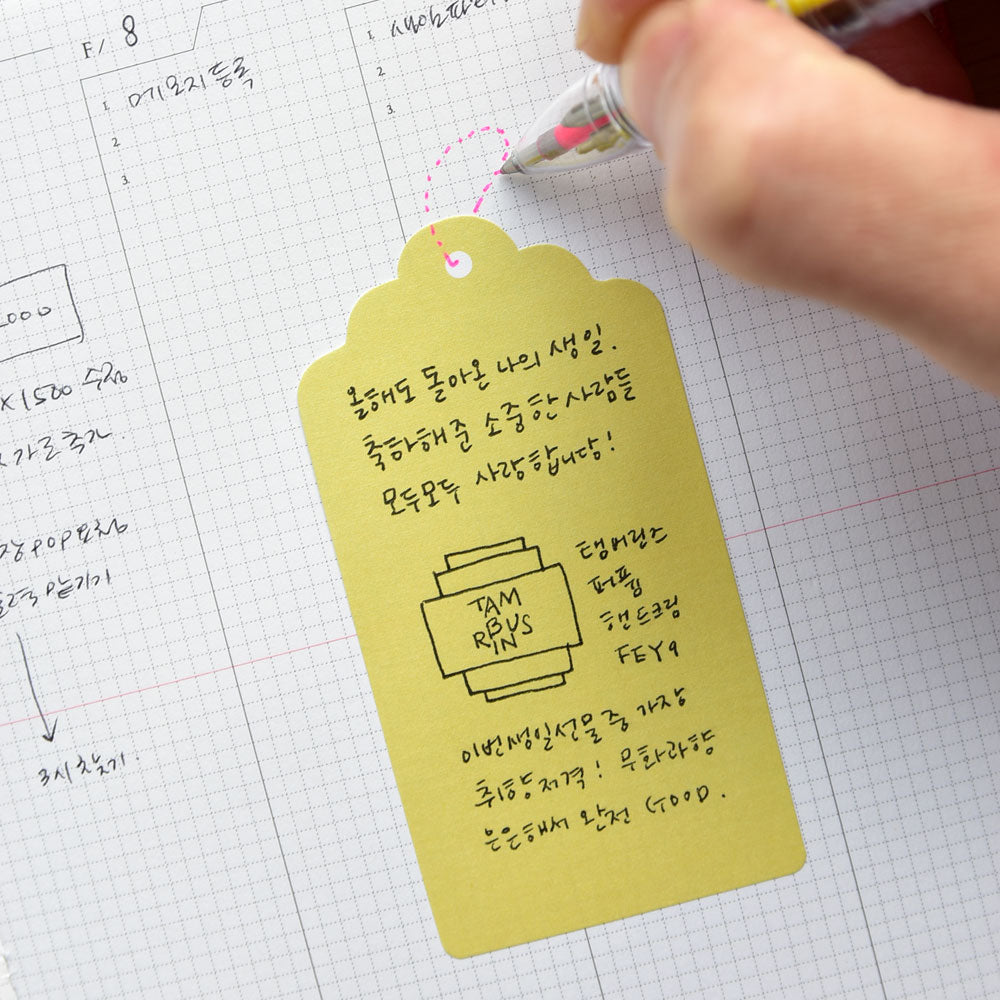 F/ 8
1. 메모지 등록
2
3.
1.
2
3.
2000
×1500 수정
가로 추가.
POP 요청
맡기기
3시 찾기.
올해도 돌아온 나의 생일.
축하해준 소중한 사람들
모두모두 사랑합니당!
TAM
BUS
RIN
탬버린즈
퍼퓸
핸드크림
FEY9
이번 생일선물 중 가장
취향저격! 무화과향
은은해서 완전 GOOD.